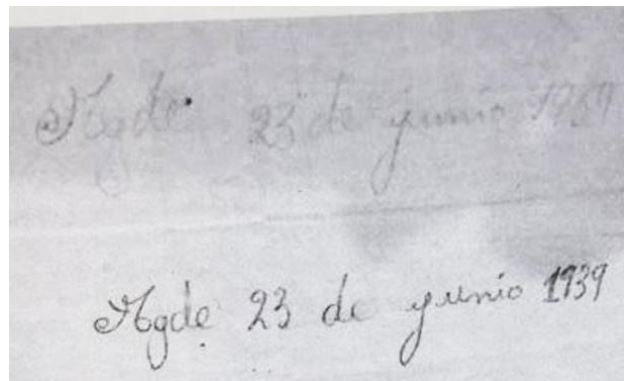 Agde 23 de junio 19
Agde 23 de junio 1939